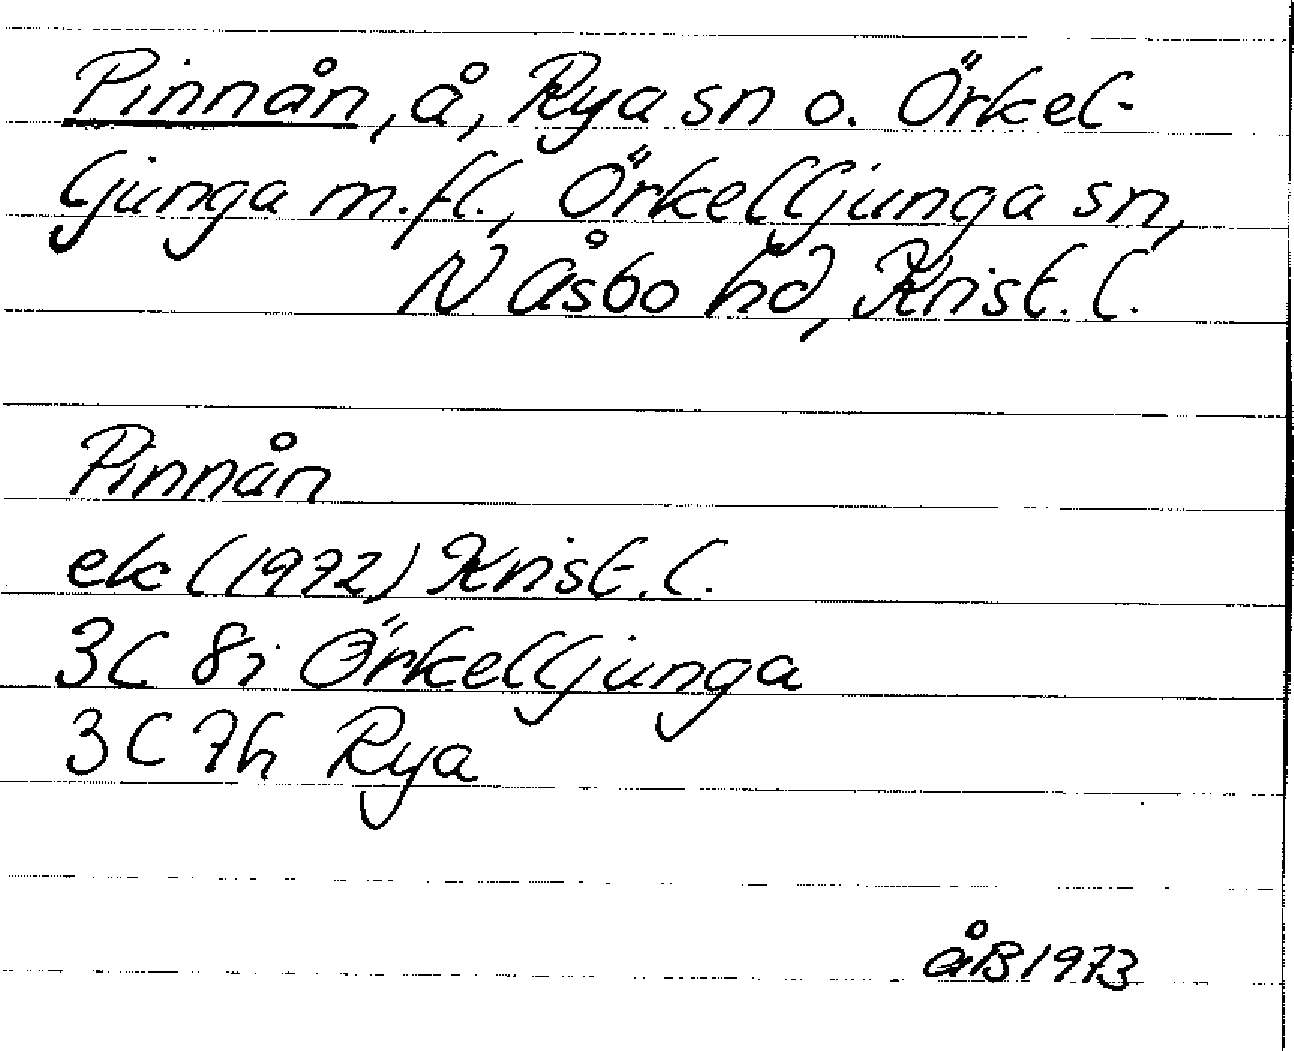 Pinnån, å, Rya sn o. Örkel-
ljunga m.fl., Örkelljunga sn,
N Åsbo hd, Krist. l.
Pinnån
ek (1972) Krist. l.
3C 8i Örkelljunga
3C 7h Rya
åB 1973